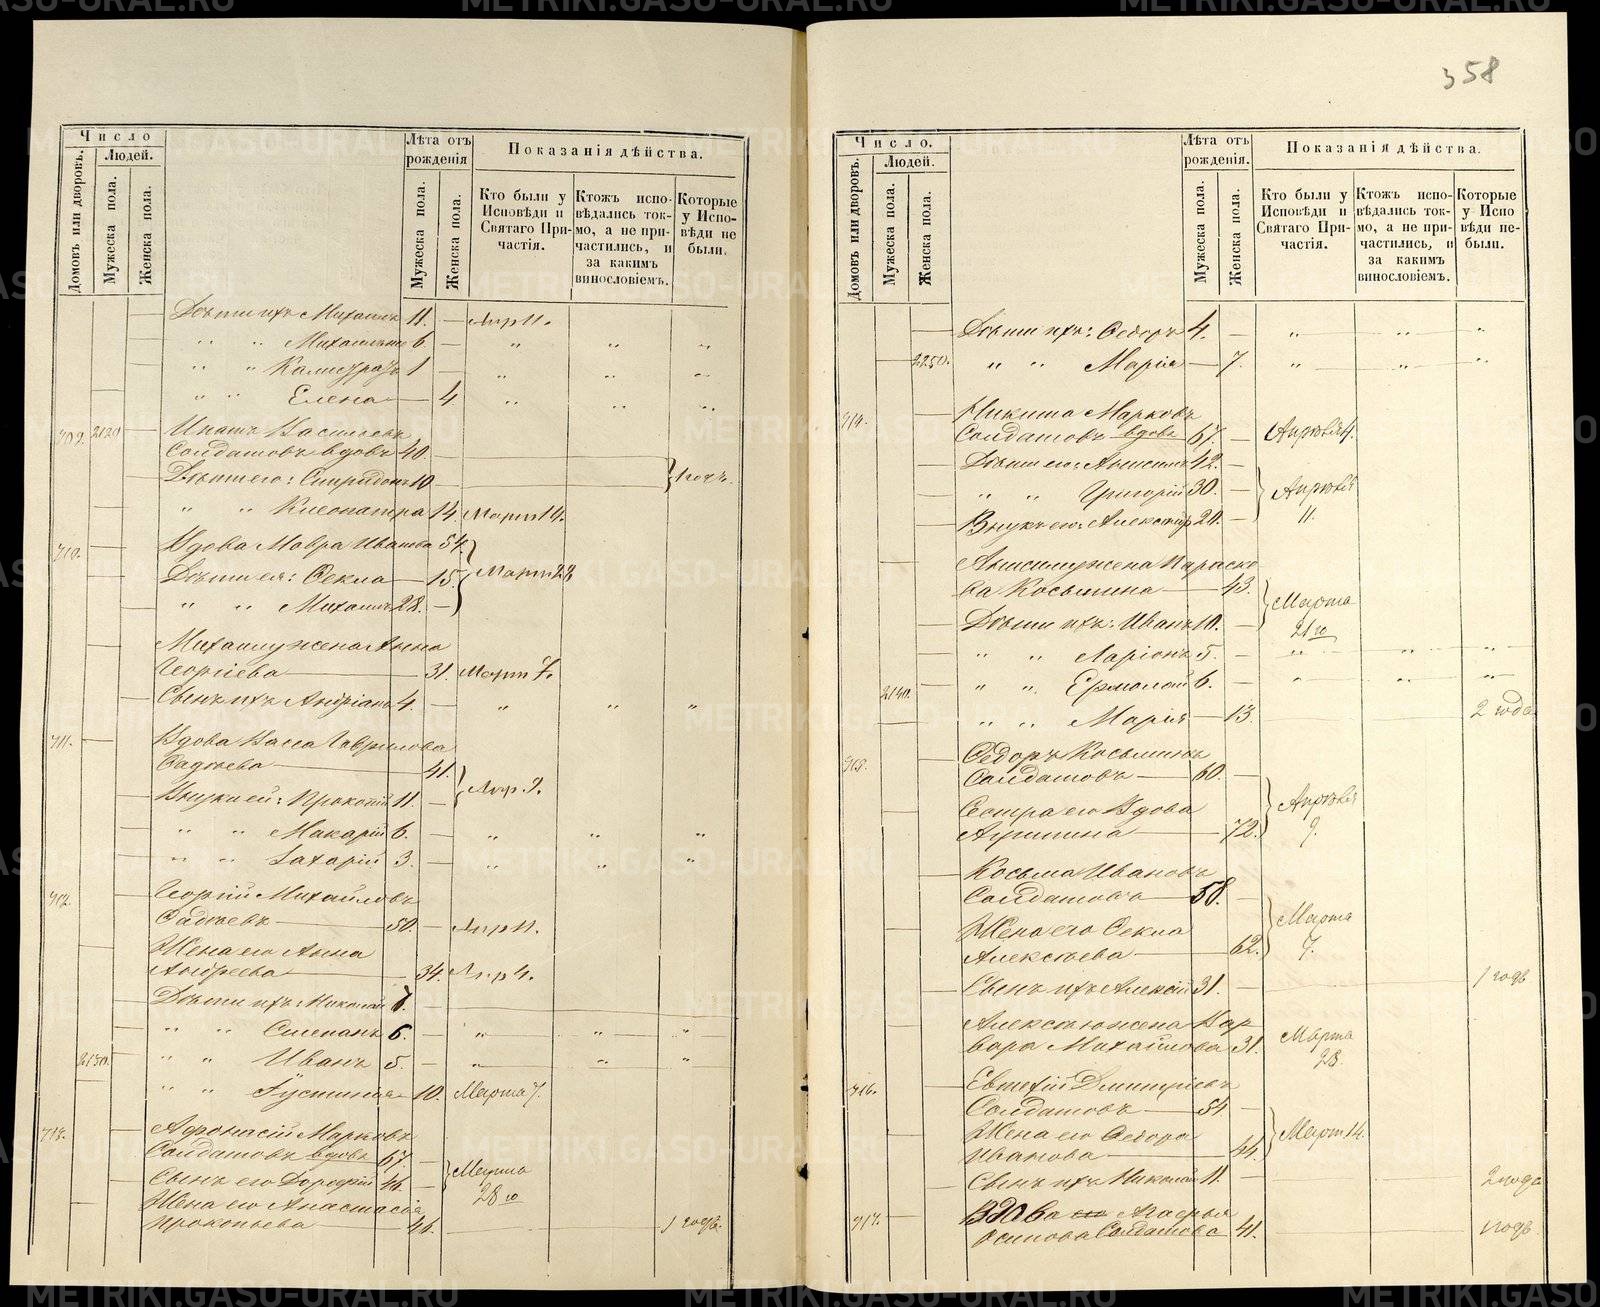 358
Число
Домовъ или дворовъ.
Людей.
Мужеска пола.
Женска пола.
Лѣта отъ рожденія
Мужеска пола.
Женска пола.
Показанія дѣйства.
Кто были у Исповѣди и Святаго Причастія.
Ктожъ исповѣдались токмо, а не причастились, и за какимъ винословіемъ.
Которые у Исповѣди не были.
Дѣти ихъ Михаилъ 11. — Апр 11.
" " 6. — " " "
" " 1 — " " "
" " Елена — 4. " " "
709. 2120 — Игнатъ Васильевъ
Солдатовъ вдовъ 40.
Дѣти его: Спиридонъ 10 — 1 годъ.
" " Клеопатра 14. Март 14.
710. — Вдова Мавра Иванова 54.
Дѣти ея: Ѳекла — 15. Март 28
" " Михаилъ 28. —
Михаилу жена Анна
Георгіева — 31. Март 7.
Сынъ ихъ Андріанъ 4. — " " "
711. — Вдова Васса Гаврилова
— 41.
Внуки ей: Прокопій 11. — Апр. 9.
" " Макарій 6. — " " "
" " Захарій 3. — " " "
712. — Георгій Михайловъ
— 50. — Апр 11.
Жена его Анна
Андреева — 34. Апр 4.
Дѣти ихъ: Николай 7. —
" " Степанъ 6. — " " "
2130. " " Иванъ 5. — " " "
" " Іустинія — 10. Марта 7.
713. — Афонасій Марковъ
Солдатовъ вдовъ 67. —
Сынъ его Дорофій 46. — Марта 28го
Жена его Анастасія
Прокопьева — 46. — 1 годъ.
Число.
Домовъ или дворовъ.
Людей.
Мужеска пола.
Женска пола.
Лѣта отъ рожденія.
Мужеска пола.
Женска пола.
Показанія дѣйства.
Кто были у Исповѣди и Святаго Причастія.
Ктожъ исповѣдались токмо, а не причастились, и за какимъ винословіемъ.
Которые у Исповѣди небыли.
— Дѣти ихъ: Ѳедоръ 4. — " " "
2250. " " Марія — 7. " " "
714. — Никита Марковъ
Солдатовъ вдовъ 67. — Апрѣля 4.
Дѣти его: Анисимъ 42. —
" " Григорій 30. — Апрѣля
Внукъ его: Александръ 20. — 11.
Анисиму жена Параско
ва Косьмина — 43.
Дѣти ихъ: Иванъ 10. — Марта 21го
" " Ларіонъ 5. — " " "
2140. " " Ермолай 6. — " " "
" " Марія — 13. — 2 года
715. — Ѳедоръ Косьминъ
Солдатовъ — 60. —
Сестра его Вдова
Агрипина — 72. Апрѣля 9.
Косьма Ивановъ
Солдатовъ — 58. —
Жена его Ѳекла
Алексѣева — 62. Марта 7.
Сынъ ихъ Алексій 31. — 1 годъ
Алексѣю жена Вар
вара Михайлова 31. Марта 28.
716. — Евтихій Дмитріевъ
Солдатовъ — 54 —
Жена его Ѳедора
Иванова — 44. Март 14.
Сынъ ихъ Николай 11. — 2 года
717. — Вдова Агафья
Осипова Солдатова 41. — 1 годъ
METRIKI.GASO-URAL.RU